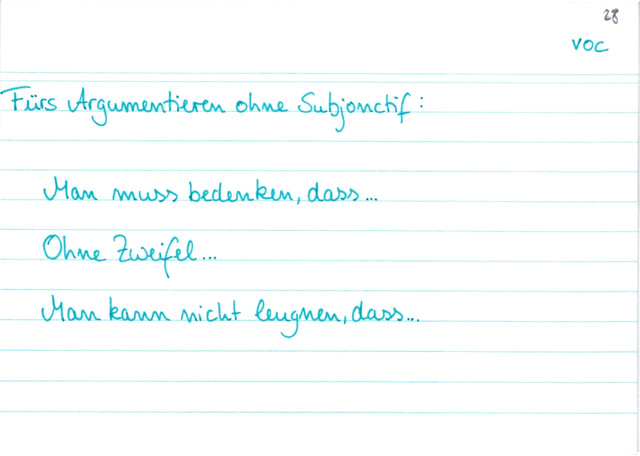 28
VOC
Fürs Argumentieren ohne Subjonctif:
Man muss bedenken, dass...
Ohne Zweifel...
Man kann nicht leugnen, dass...